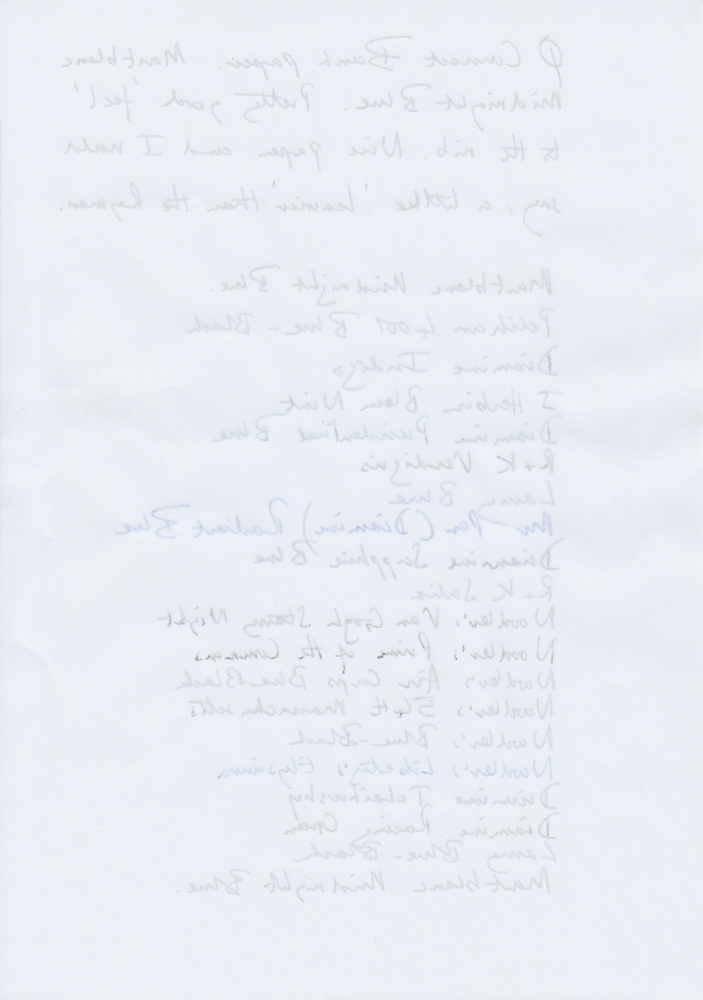 Connort Bank paper. Montblanc
Midnight Blue. Pretty good 'feel'
to the nib. Nice paper and I would
say, a little 'leaner' than the
Montblanc Midnight Blue.
Pelikan 4001 Blue-Black
Diamine Indigo
J Herbin Bleu Nuit
Diamine Presidential Blue
R+K Verdigris
Lamy Blue
Mr Pen (Diamine) Radiant Blue
Diamine Sapphire Blue
R+K Salix
Noodler's Van Gogh Starry Night
Noodler's Prime of the Commons
Noodler's Air Corps Blue Black
Noodler's 54th Massachusetts
Noodler's Blue-Black
Noodler's Liberty's Elysium
Diamine Tchaikovsky
Diamine Racing Green
Lamy Blue-Black
Montblanc Midnight Blue.